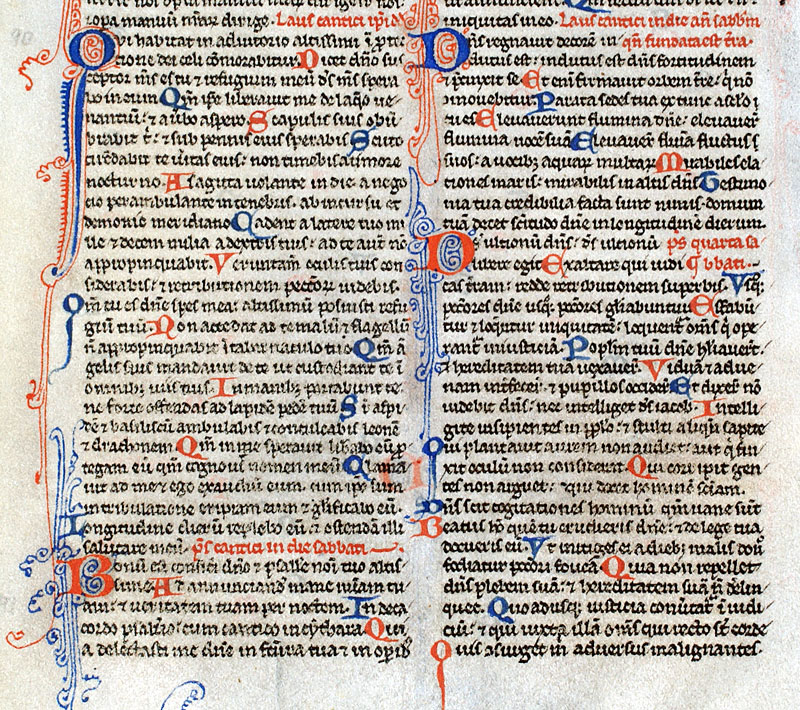 sopa manuū nr̄ar̄ dirige. Laus cantici ipi d̄d
Qui habitat in adiutorio altissimi ī prote
ctione dei celi cōmorabitur. Dicet dn̄o sus
ceptor ms̄ es tu ⁊ refugium meū ds̄ ms̄ spera
bo in eum. Qm̄ ip̄e liberauit me de laq̄o ue
nantiū: ⁊ a ūbo aspero. Scapulis suis obū
brabit t̄: ⁊ sub pennis eius sperabis. Scuto
cūcdabit te ūitas eius: non timebis a timore
nocturno. A sagita volante in die, a nego
cio perambulante in tenebris: ab incursu et
demonio meridiano. Cadent a latere tuo mi
lle ⁊ decem milia a dextris tuis: ad te aut̄ nō
appropinquabit. Verumtam̄ oculis tuis con
siderabis: ⁊ retributionem peccator̄ videbis.
Qm̄ tu es dn̄e spes mea: altissimū posuisti refu
giū tuū. Non accedat ad te malū: ⁊ flagellū
n̄ appropinquabit ī tabernaculo tuo. Qm̄ ā
gelis suis mandauit de te: ut custodiant te ī
omnib; viis tuis. In manib; portabunt te:
ne forte offendas ad lapidē pedē tuū. S̄ aspi
dē ⁊ basiliscū ambulabis: ⁊ conculcabis leonē
⁊ draconem. Qm̄ in me sperauit liberabo eū: p̄
tegam eū qm̄ cognouit nomen meū. Clama
uit ad me ⁊ ego exaudiā eum: cum ip̄o sum
in tribulatione eripiam eum ⁊ gl̄ificabo eū.
Longitudine dierū replebo eū: ⁊ ostendā illi
salutare meū. ps̄ cantici in die sabbati
Bonū est cōfiteri dn̄o: ⁊ psallere noī tuo altis
sime. Ad annunciandū mane mīam tu
am: ⁊ veritatem tuam per noctem. In deca
cordo psalt̄io: cum cantico in cythara. Qui
a delectasti me dn̄e in fc̄ura tua: ⁊ in operib;
iniquitas in eo. Laus cantici in die an̄ sabbm̄
Dn̄s regnauit decorē in qn̄ fundata est t̄ra.
dutus est: indutus est dn̄s fortitudinem
⁊ p̄cinxit se. Et enī firmauit orbem t̄re: q̄ nō
cōmouebitur. Parata sedes tua ex tunc: a sc̄lo t
u es. Eleuauerunt flumina dn̄e: eleuauer̄
flumina uocē suā. Eleuauer̄ flūia fluctus s
suos: a vocib; aquar̄ multar̄. Mirabiles ela
tiones maris: mirabilis in altis dn̄s. Testimo
nia tua credibilia facta sunt nimis: domum
tuā decet sc̄itudo dn̄e in longitudinē dierum.
Ds̄ ultionū dn̄s: ds̄ ultionū ps̄ quarta sa
libere egit. Exaltare qui iudi bbati.
cas t̄ram: redde retributionem superbis. Vsq̄;
pc̄cores dn̄e: usq̄; pc̄cores gl̄iabuntur. Effabū
tur ⁊ loq̄ntur iniquitatē: loquent̄ om̄s q̄ ope
rant̄ iniusticiā. Poplm̄ tuū dn̄e hūiliauer̄:
⁊ hereditatem tuā uexauer̄. Viduā ⁊ adue
nam int̄fecer̄: ⁊ pupillos occider̄. Et dixer̄ nō
uidebit dn̄s: nec intelliget ds̄ iacob. Intelli
gite insipientes in ppl̄o: ⁊ stulti aliqn̄ sapite
Qui plantauit aurem non audiet: aut q̄ fin
xit oculū non considerat. Qui corripit gen
tes non arguet: ⁊ qui docet hominē sc̄iam.
Dn̄s scit cogitationes hominū: qm̄ uane sunt
Beatus hō quē tu erudieris dn̄e: ⁊ de lege tua
docueris eū. Vt mitiges ei a dieb; malis: don̄
fodiatur pcc̄ori fouea. Quia non repellet
dn̄s plebem suā: ⁊ hereditatem suā n̄ delin
quet. Quoadusq̄; iusticia conūtat̄ ī iudi
ciū: ⁊ qui iuxta illā om̄s qui recto st̄ corde
Quis ᵹsurget m̄ aduersus malignantes.